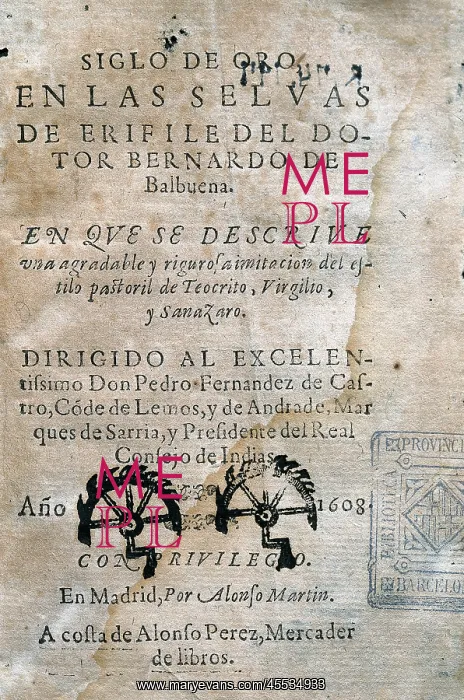 SIGLO DE ORO
EN LAS SELVAS
DE ERIFILE DEL DO-
TOR BERNARDO DE
Balbuena.
EN QVE SE DESCRIVE
vna agradable y riguroſa imitacion del eſ-
tilo paſtoril de Teocrito, Virgilio,
y Sanazaro.
DIRIGIDO AL EXCELEN-
tiſſimo Don Pedro Fernandez de Caſ-
tro, Códe de Lemos, y de Andrade, Mar
ques de Sarria, y Preſidente del Real
Conſejo de Indias
Año 1608.
CON PRIVILEGIO.
En Madrid, Por Alonſo Martin.
A coſta de Alonſo Perez, Mercader
de libros.
ME
PL
ME
PL
PROVINCI
BIBLIO
BARCELO
www.maryevans.com/45534933